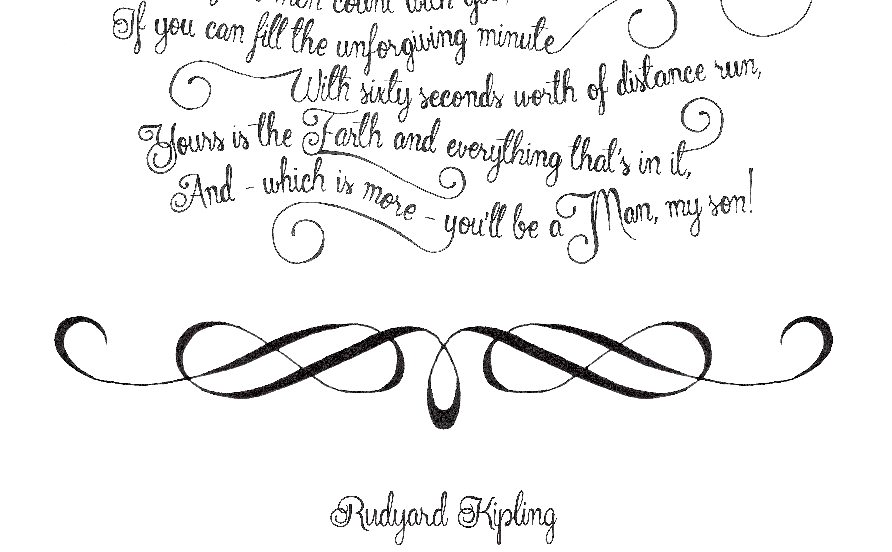 men count with
If you can fill the unforgiving minute
With sixty seconds worth of distance run,
Yours is the Earth and everything that's in it,
And - which is more - you'll be a Man, my son!
Rudyard Kipling